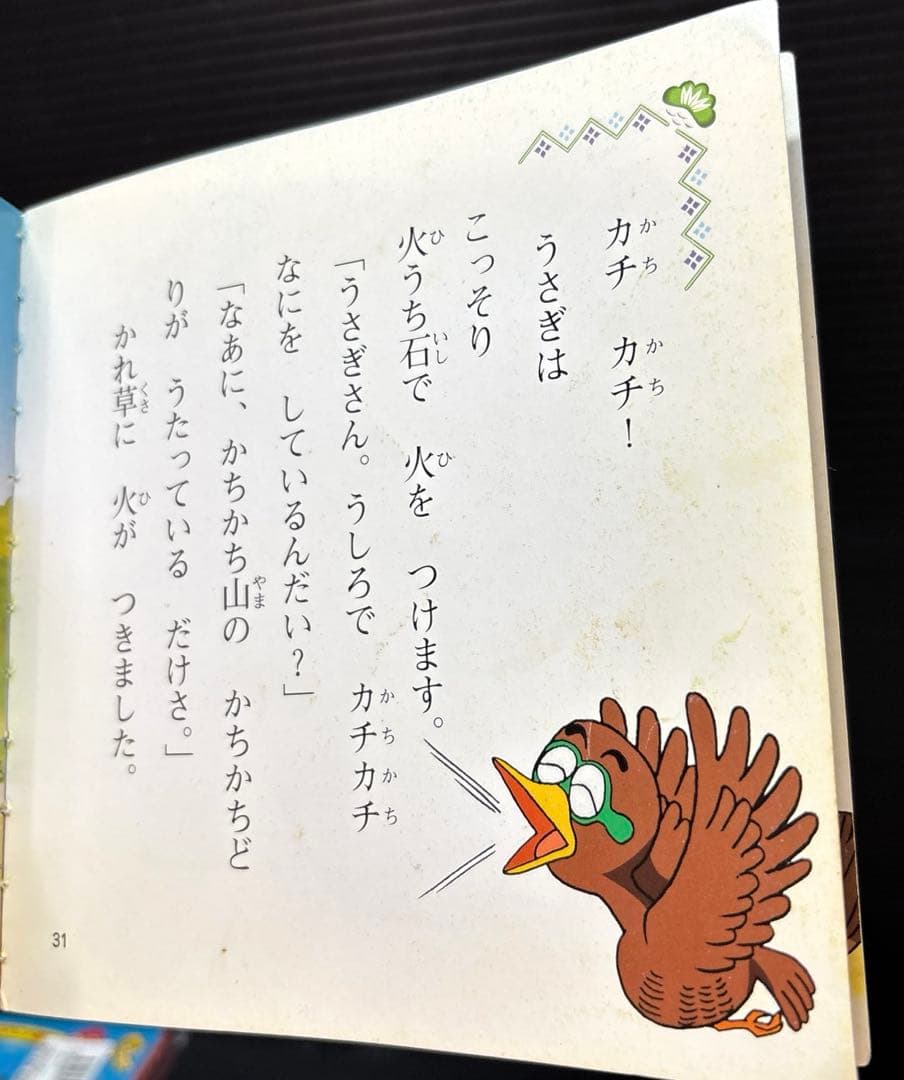 カチ カチ！
うさぎは
こっそり
火うち石で 火を つけます。
「うさぎさん。うしろで カチカチ
なにを しているんだい？」
「なあに、かちかち山の かちかちど
りが うたっている だけさ。」
かれ草に 火が つきました。
31